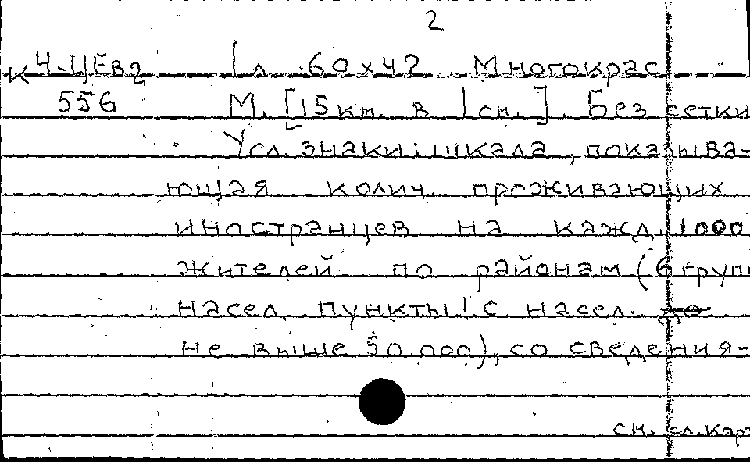 2
К 4-ЦЕв2 1 л. 60х42 Многокрас
556 М. [15 км. в 1 см.]. Без сетки
Усл. знаки: шкала, показыва-
ющая колич проживающих
иностранцев на кажд. 1000
жителей по районам (6 групп
насел. пункты: с насел.
не выше 50 000), со сведения-
см. сл. карт